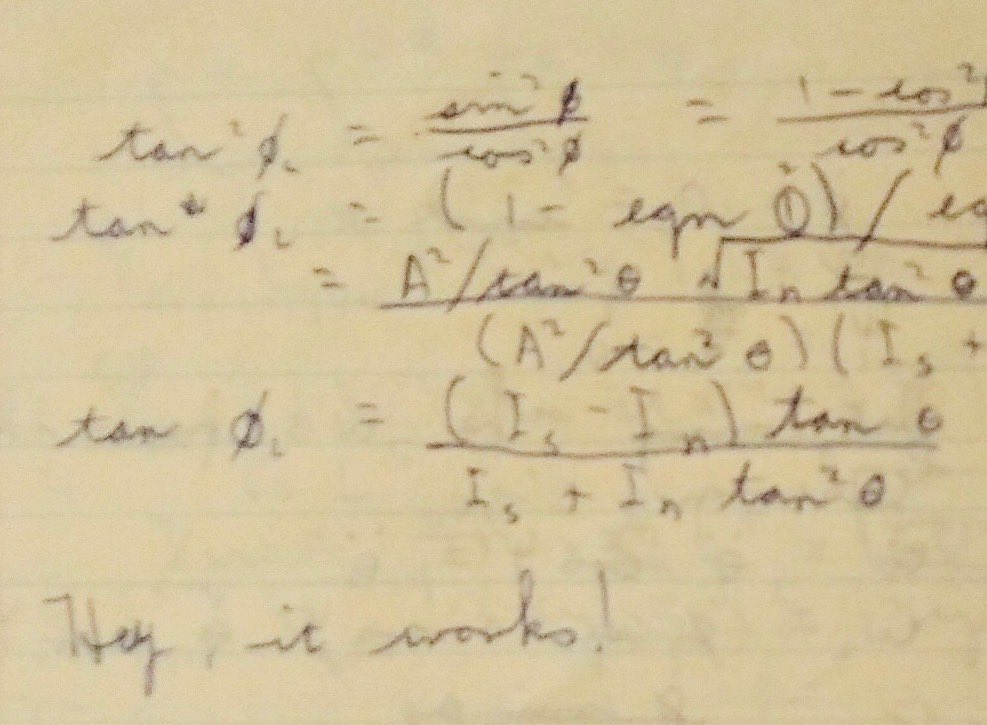 tan²φ₁ = sin²φ / cos²φ = 1 - cos² / cos²φ
tan φ₁ = (1 - eqn ①²) /
= A²/tan²θ √Iₙ tan²θ / (A²/tan²θ)(Iₛ +
tan φ₁ = (Iₛ - Iₙ) tan θ / Iₛ + Iₙ tan²θ
Hey, it works!